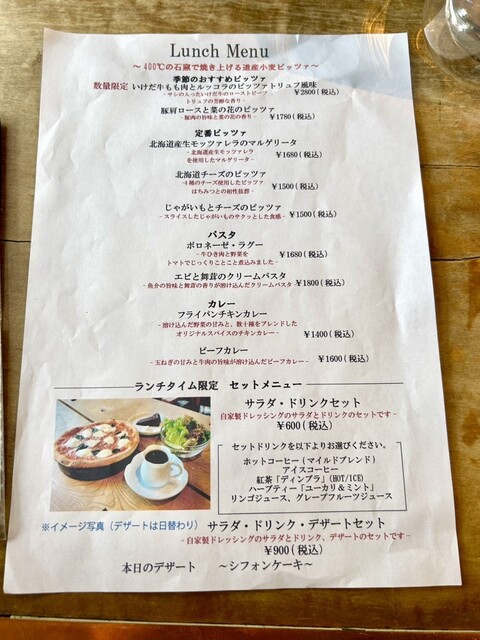 Lunch Menu
～400℃の石窯で焼き上げる道産小麦ピッツァ～
季節のおすすめピッツァ
数量限定 いけだ牛もも肉とルッコラのピッツァトリュフ風味
- サシの入ったいけだ牛のローストビーフ ¥2800(税込)
トリュフの芳醇な香り -
豚肩ローストと菜の花のピッツァ
- 豚肉の旨味と菜の花の香り - ¥1780(税込)
定番ピッツァ
北海道産生モッツァレラのマルゲリータ
- 北海道産生モッツァレラ ¥1680(税込)
を使用したマルゲリータ -
北海道チーズのピッツァ
- 4種のチーズ使用したピッツァ ¥1500(税込)
はちみつとの相性抜群 -
じゃがいもとチーズのピッツァ
- スライスしたじゃがいものサクッとした食感 - ¥1500(税込)
パスタ
ボロネーゼ・ラグー
- 牛ひき肉と野菜を ¥1680(税込)
トマトでじっくりことこと煮込みました -
エビと舞茸のクリームパスタ
- 魚介の旨味と舞茸の香りが溶け込んだクリームパスタ - ¥1800(税込)
カレー
フライパンチキンカレー
- 溶け込んだ野菜の甘みと、数十種をブレンドした
オリジナルスパイスのチキンカレー - ¥1400(税込)
ビーフカレー
- 玉ねぎの甘みと牛肉の旨味が溶け込んだビーフカレー - ¥1600(税込)
ランチタイム限定 セットメニュー
サラダ・ドリンクセット
- 自家製ドレッシングのサラダとドリンクのセットです -
¥600(税込)
セットドリンクを以下よりお選びください。
ホットコーヒー(マイルドブレンド)
アイスコーヒー
紅茶「ディンブラ」(HOT/ICE)
ハーブティー「ユーカリ＆ミント」
リンゴジュース、グレープフルーツジュース
※イメージ写真（デザートは日替わり）
サラダ・ドリンク・デザートセット
- 自家製ドレッシングのサラダとドリンク、デザートのセットです -
¥900(税込)
本日のデザート ～シフォンケーキ～